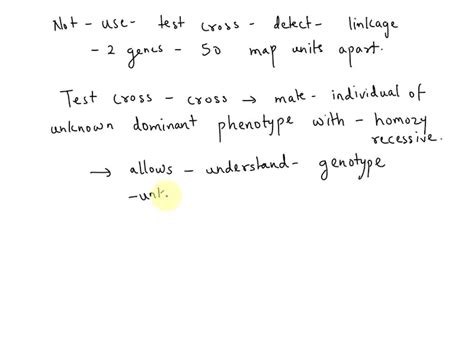 Not - use - test cross - detect - linkage
- 2 genes - 50 map units apart.
Test cross - cross → mate - individual of
unknown dominant phenotype with - homozy
recessive.
→ allows - understand - genotype
- unk.